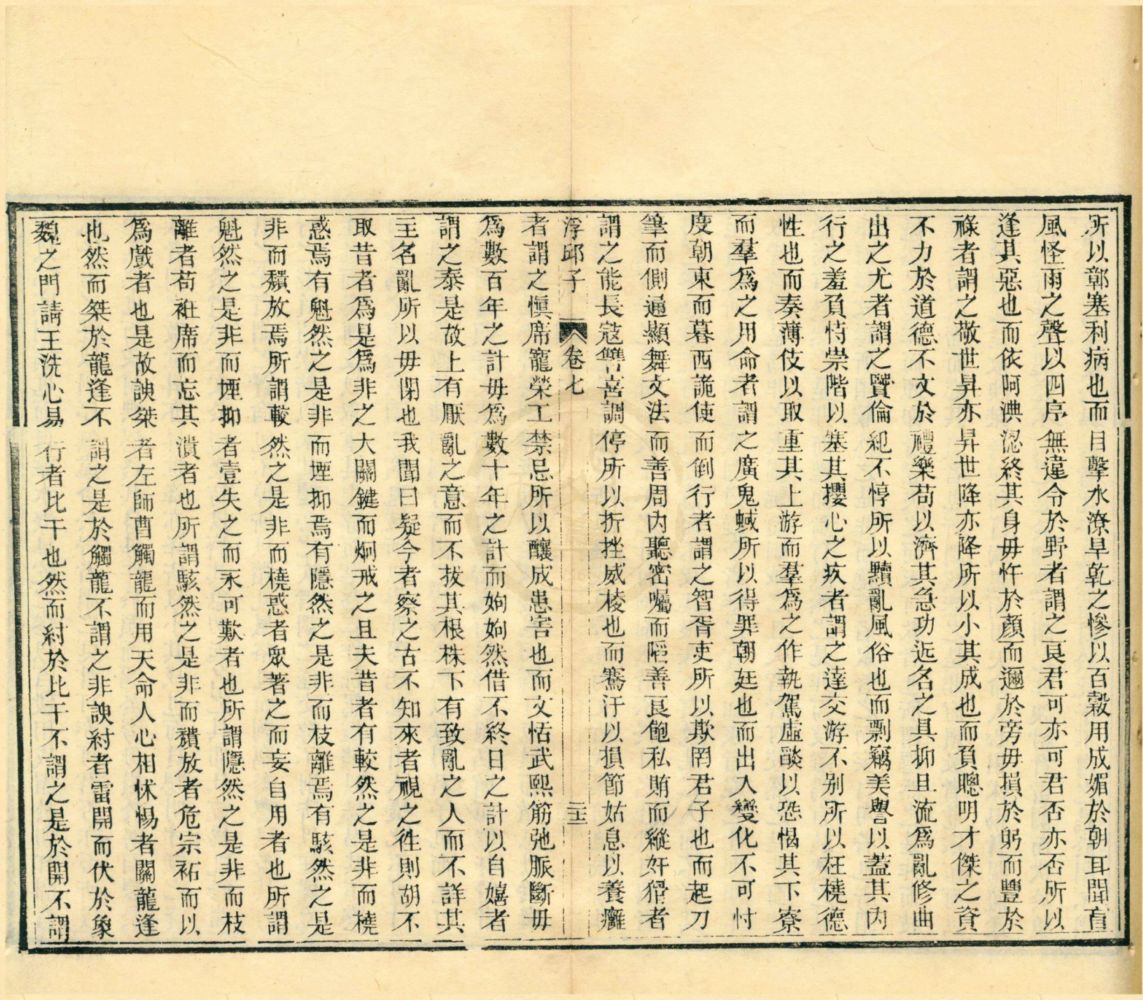 所以鄣塞利病也而目擊水潦旱乾之慘以百穀用成媚於朝耳聞盲
風怪雨之聲以四序無違令於野者謂之良君可亦可君否亦否所以
逢其惡也而依阿淟涊終其身毋忤於顏而邇於旁毋損於躬而豐於
祿者謂之敬世昇亦昇世降亦降所以小其成也而負聰明才傑之資
不力於道德不文於禮樂苟以濟其急功近名之具抑且流爲亂修曲
出之尤者謂之賢倫紀不惇所以黷亂風俗也而剽竊美譽以蓋其内
行之羞負恃崇階以塞其攖心之疚者謂之達交游不別所以枉橈德
性也而奏薄伎以取重其上游而羣爲之作執駕虛談以恐愒其下寮
而羣爲之用命者謂之廣鬼蜮所以得罪朝廷也而出入變化不可忖
度朝東而暮西詭使而倒行者謂之智胥吏所以欺罔君子也而起刀
筆而側逼顯舞文法而善周内聽密囑而陋善良飽私賄而縱奸猾者
謂之能長寇讐喜調停所以折挫威棱也而騫汙以損節姑息以養癰
浮邱子 卷七 二五
者謂之愼席寵榮工禁忌所以釀成患害也而文恬武熙筋弛脈斷毋
爲數百年之計毋爲數十年之計而姁姁然借不終日之計以自嬉者
謂之泰是故上有厭亂之意而不拔其根株下有致亂之人而不詳其
主名亂所以毋閉也我聞曰疑今者察之古不知來者視之徃則胡不
取昔者爲是爲非之大關鍵而炯戒之且夫昔者有較然之是非而橈
惑焉有魁然之是非而堙抑焉有隱然之是非而枝離焉有駭然之是
非而穨放焉所謂較然之是非而橈惑者眾著之而妄自用者也所謂
魁然之是非而堙抑者壹失之而永可歎者也所謂隱然之是非而枝
離者苟袵席而忘其潰者也所謂駭然之是非而穨放者危宗祏而以
爲戲者也是故諛桀者左師曹觸龍而用天命人心相怵惕者關龍逢
也然而桀於龍逢不謂之是於觸龍不謂之非諛紂者雷開而伏於象
魏之門請王洗心易行者比干也然而紂於比干不謂之是於開不謂